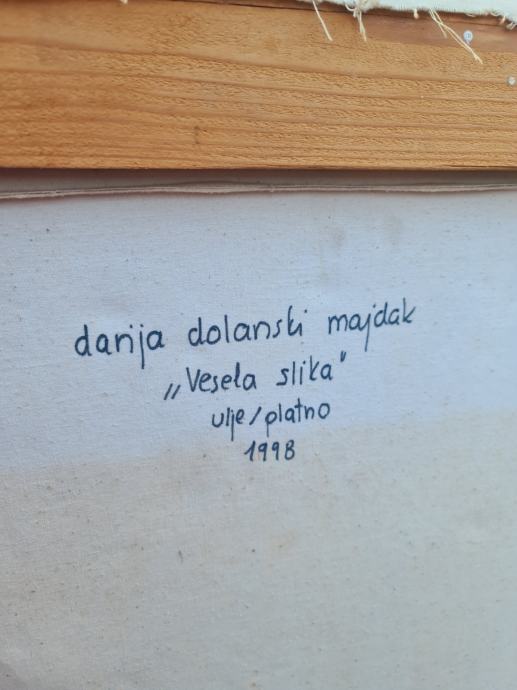 darija dolanski majdak
„Vesela slika"
ulje/platno
1998